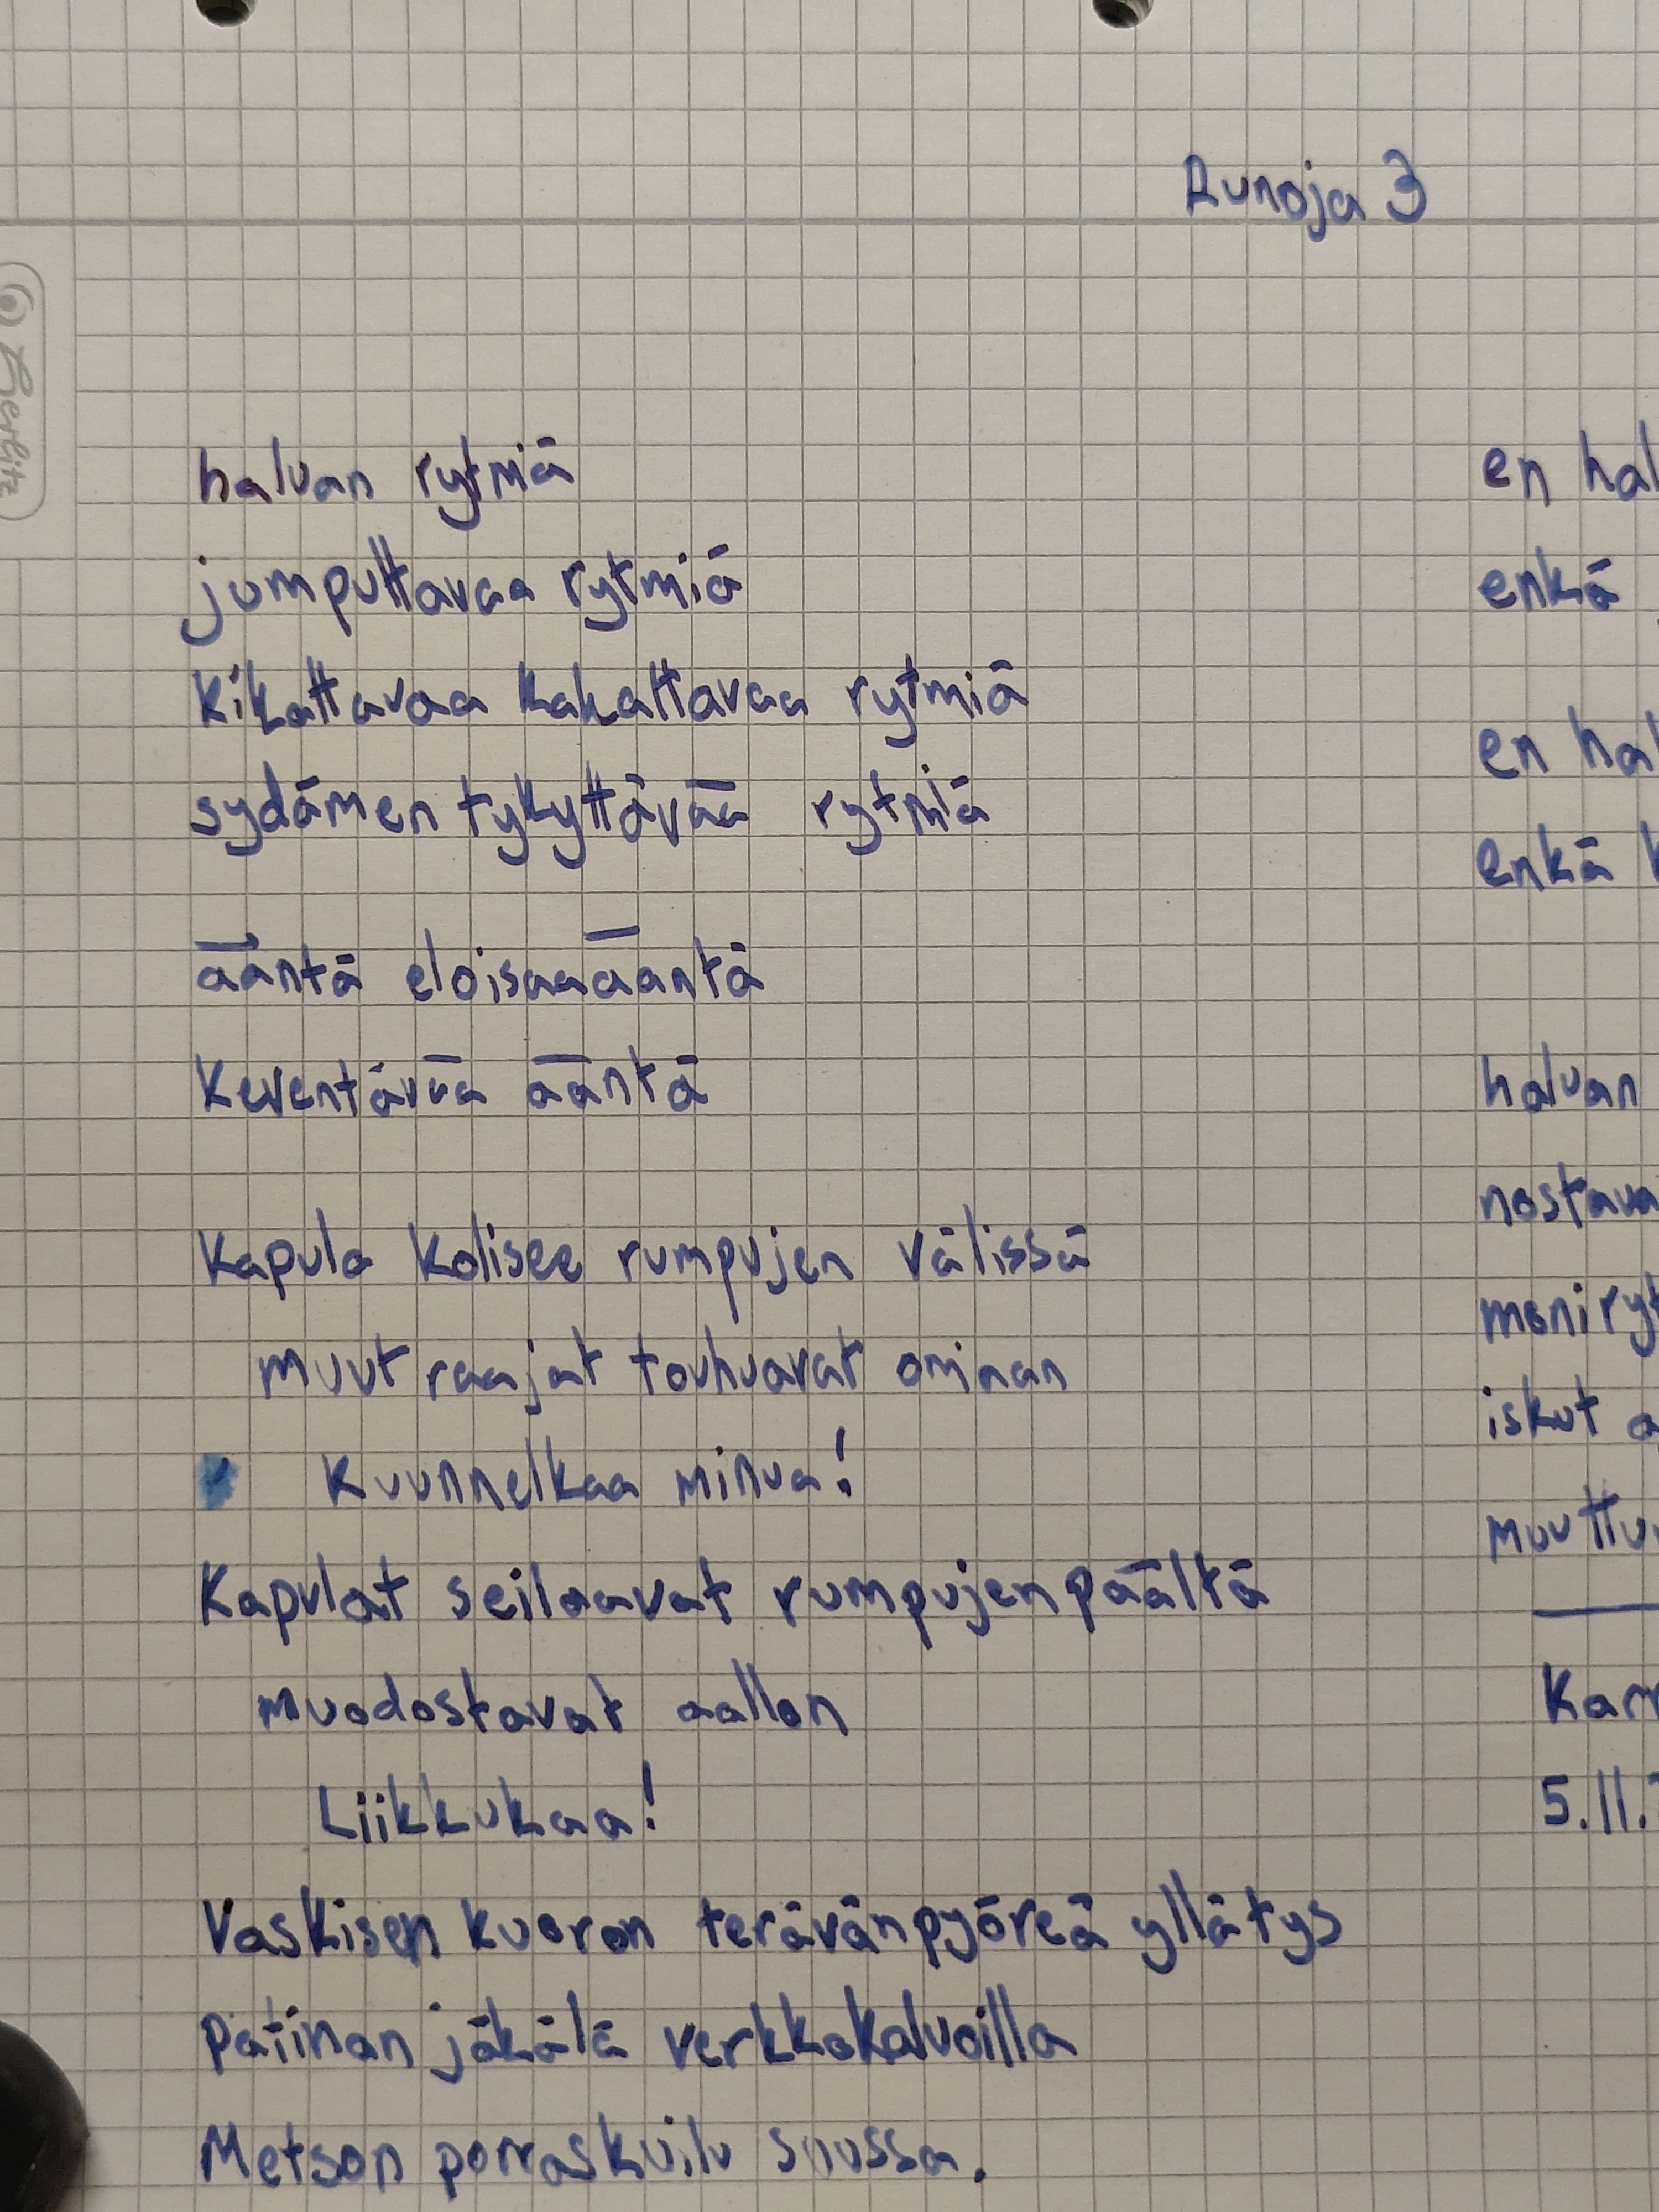 Runoja 3
Herlitz
haluan rytmiä
jumputtavaa rytmiä
kikattavaa kakattavaa rytmiä
sydämen tykyttävää rytmiä
ääntä eloisaa ääntä
keventävää ääntä
Kapula kolisee rumpujen välissä
muut raajat touhuavat ominan
Kuunnelkaa minua!
Kapulat seilaavat rumpujen päältä
muodostavat aallon
Liikkukaa!
Vaskisen kuoron terävänpyöreä yllätys
Patinan jäkälä verkkokalvoilla
Metson porraskuilu suussa.
en hal
enkä
en hal
enkä k
haluan
nostava
moniryt
iskut
muuttu
Karr
5.11.